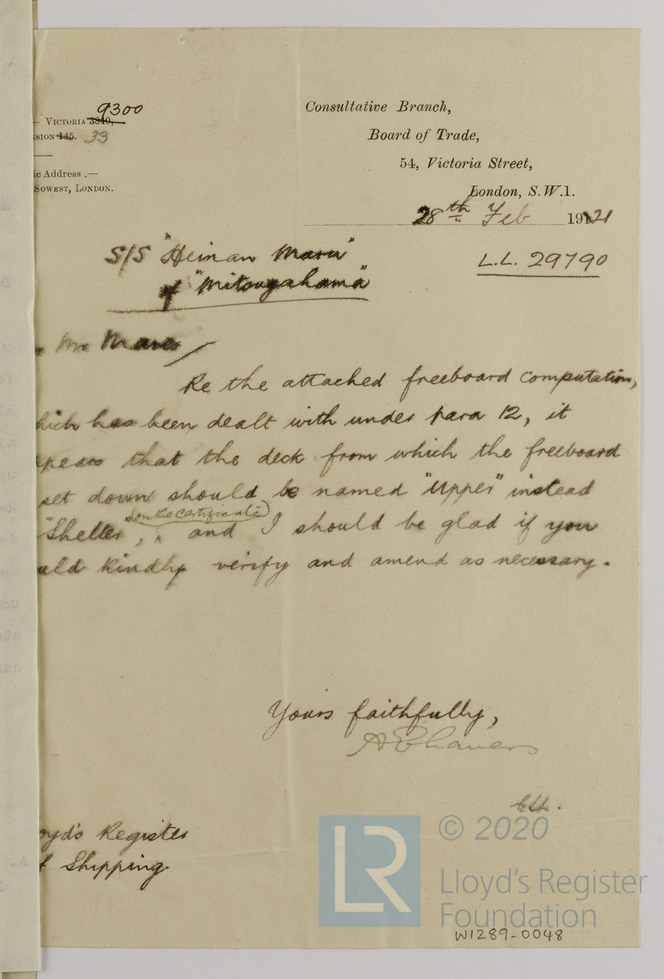 9300
Victoria 3840,
sion 145. 33
ic Address :—
Sowest, London.
Consultative Branch,
Board of Trade,
54, Victoria Street,
London, S.W.1.
28th Feb 1921
S/S "Heinan Maru"
of "Mitsugahama"
L.L. 29790
Mr
Re the attached freeboard computation,
hich has been dealt with under para 12, it
ppears that the deck from which the freeboard
set down should be named "Upper" instead
(on the certificate)
"Shelter, and I should be glad if you
uld kindly verify and amend as necessary.
Yours faithfully,
oyd's Register
f Shipping
© 2020
LR
Lloyd's Register
Foundation
W1289-0048